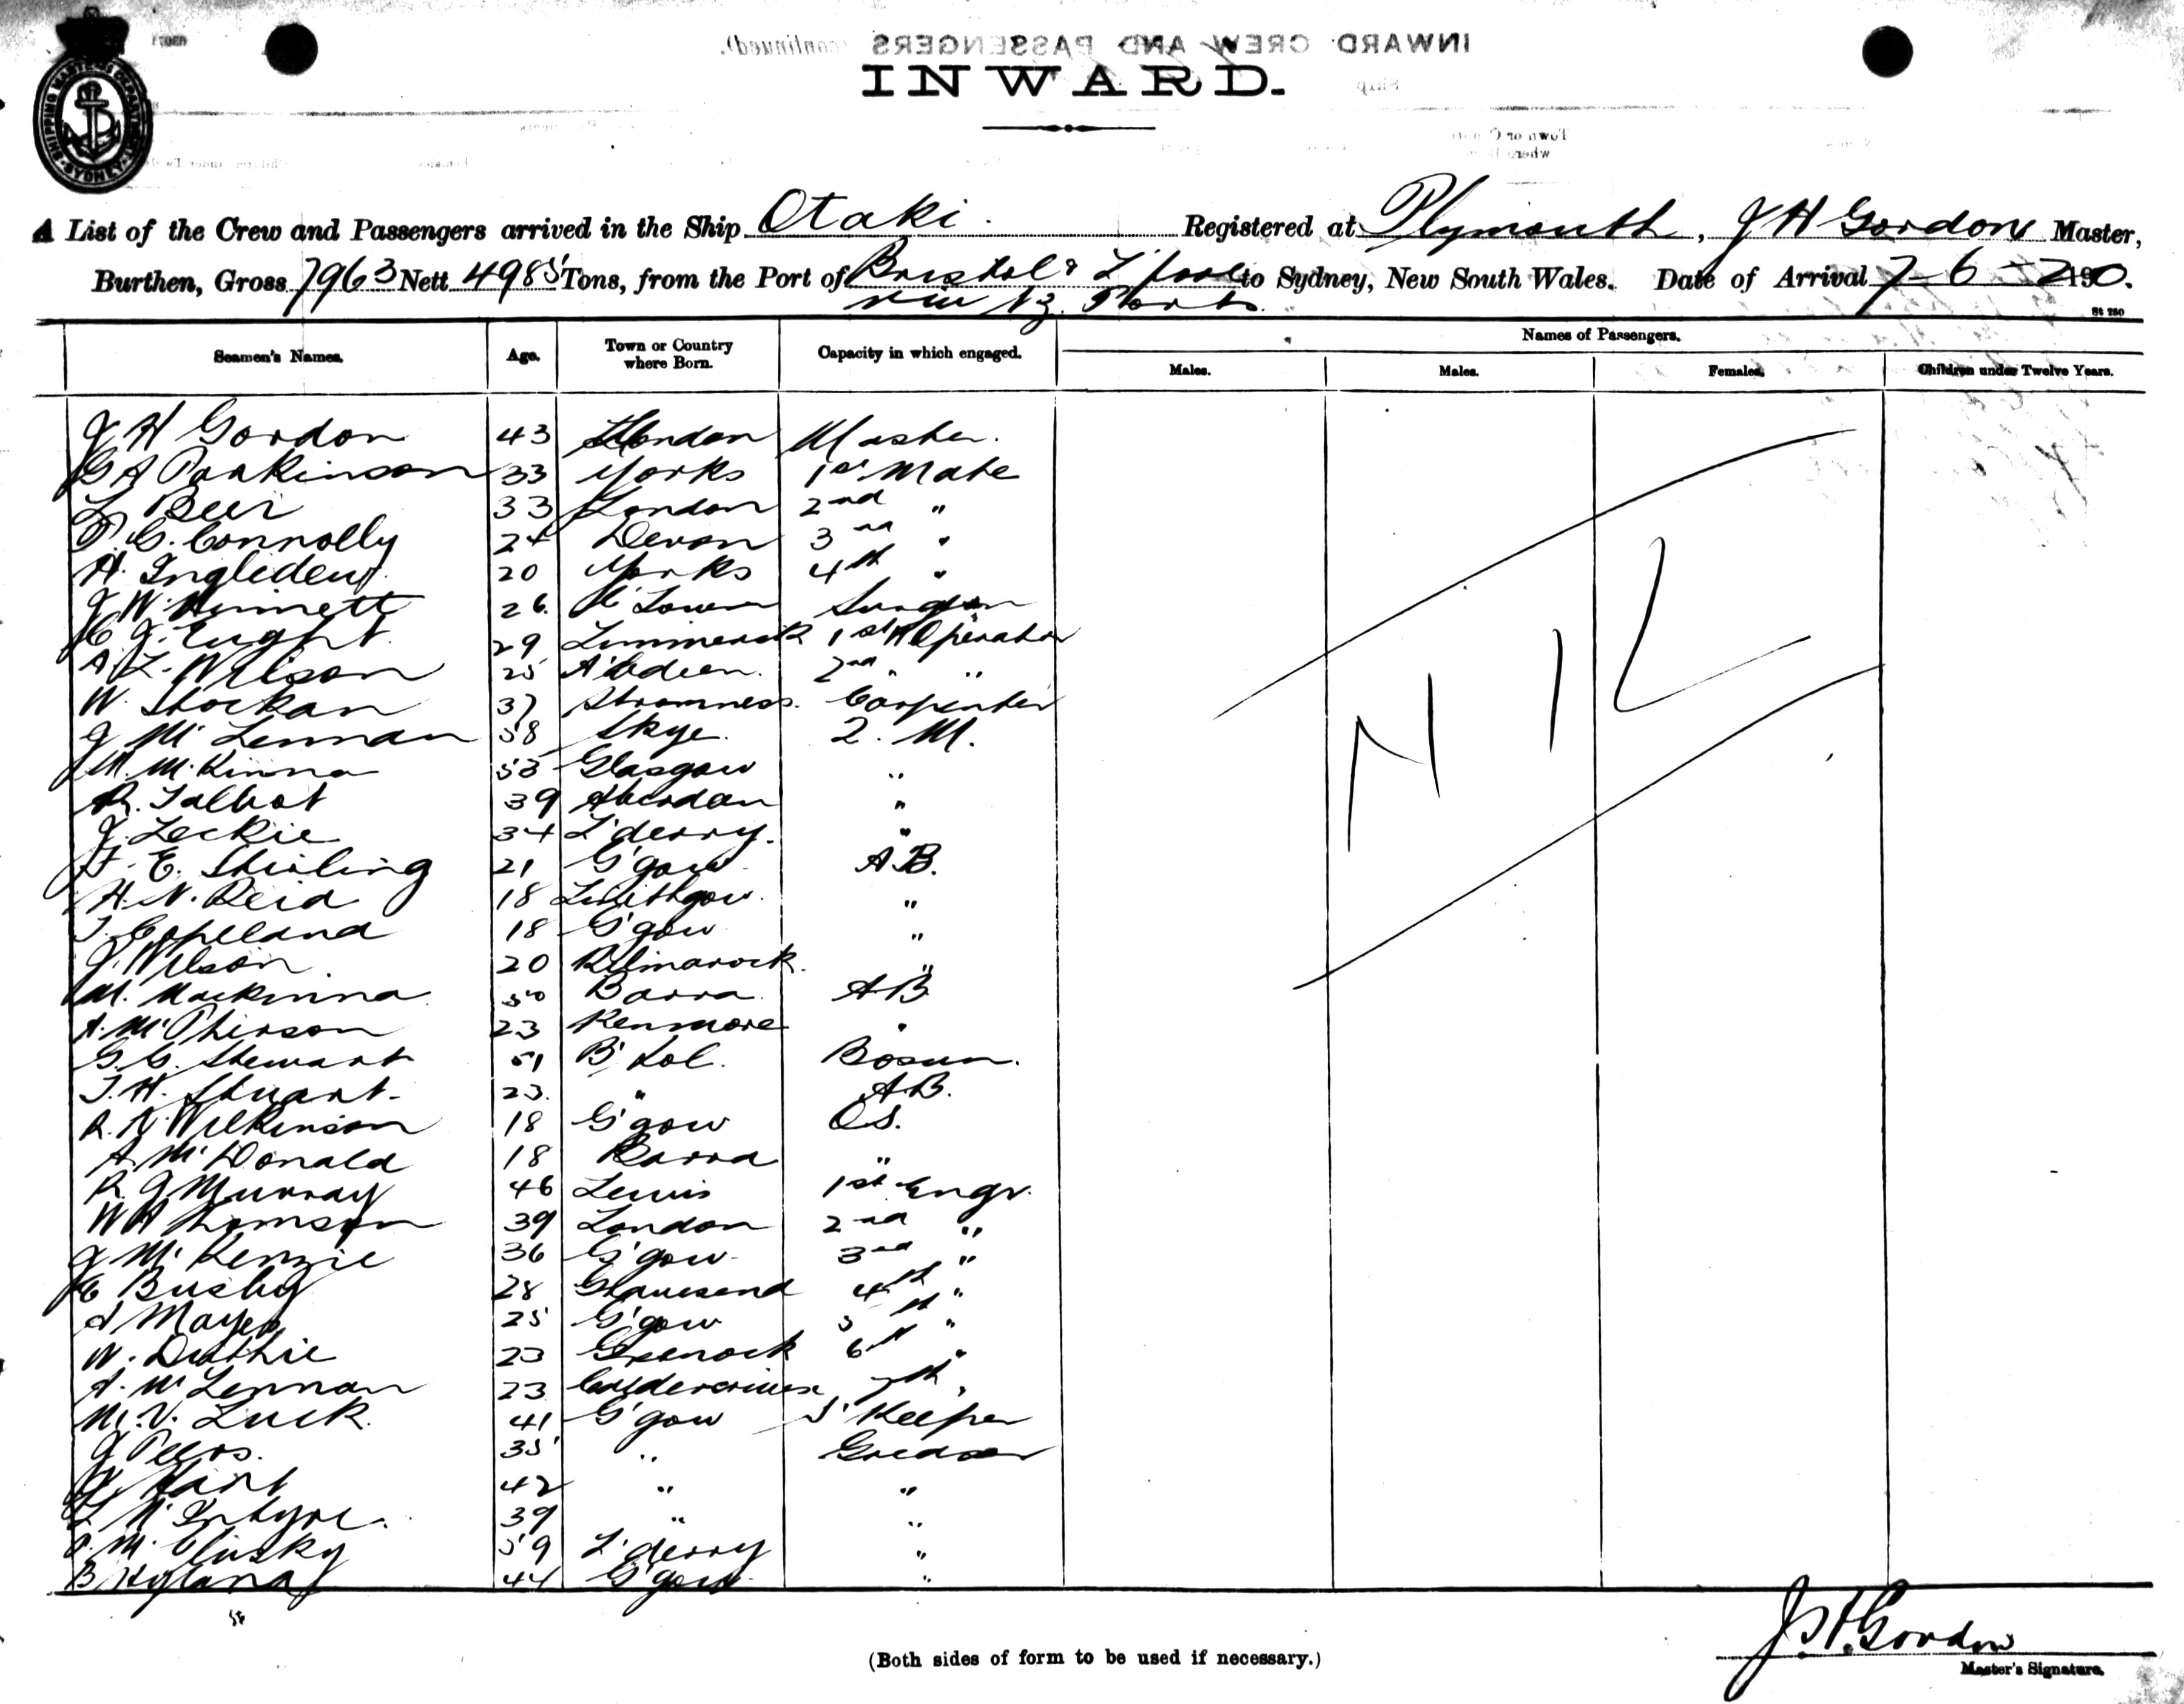 INWARD CREW AND PASSENGERS (continued).
INWARD.
SHIPPING MASTER'S DEPARTMENT SYDNEY
A List of the Crew and Passengers arrived in the Ship Otaki. Registered at Plymouth, J H Gordon Master,
Burthen, Gross 7963 Nett 4985 Tons, from the Port of Bristol & L'pool to Sydney, New South Wales. Date of Arrival 7-6-20.
via N.Z. Ports.
St 280
Seamen's Names. Age. Town or Country where Born. Capacity in which engaged. Names of Passengers.
Males. Males. Females. Children under Twelve Years.
J H Gordon 43 London Master.
G A Parkinson 33 Yorks 1st Mate
L Beer 33 London 2nd "
P. C. Connolly 24 Devon 3rd "
H. Ingledew 20 Yorks 4th "
J W 26 Surgeon
C J. 29 Limmerick 1st W Operator
A. L. Wilson 25 A'bdeen. 2nd " "
W. Stockan 37 Stromness. Carpenter
J Mc Lennan 58 Skye. Q. M.
M. McKinna 53 Glasgow "
R. Talbot 39 Aberdeen "
J. Leckie 34 L'derry. "
E. Stirling 21 G'gow A.B.
H. N. Reid 18 Linlithgow. "
T. Copeland 18 G'gow "
J. Wilson 20 Kilmarock. "
M. Mackinna 50 Barra. AB
A. McPherson 23 Kenmore "
G. G. Stewart 51 B'tol. Bosun.
T. H. Stuart. 23. " A.B.
R. N. Wilkinson 18 G'gow O.S.
A. McDonald 18 Barra "
R. J Murray 46 Lewis 1st Engr.
W H Thomson 39 London 2nd "
J McKenzie 36 G'gow 3rd "
C Busby 28 Gravesend 4th "
A Mayer 25 G'gow 5th "
W. Duthie 23 Greenock 6th "
A. McLennan 23 7th "
M. V. Luck. 41 G'gow S'Keeper
J Peers. 35 " Greaser
Hart 42 " "
McIntyre. 39 " "
P. McClusky 59 L'derry "
B Hyland 44 G'gow "
NIL
J. H. Gordon
Master's Signature.
(Both sides of form to be used if necessary.)